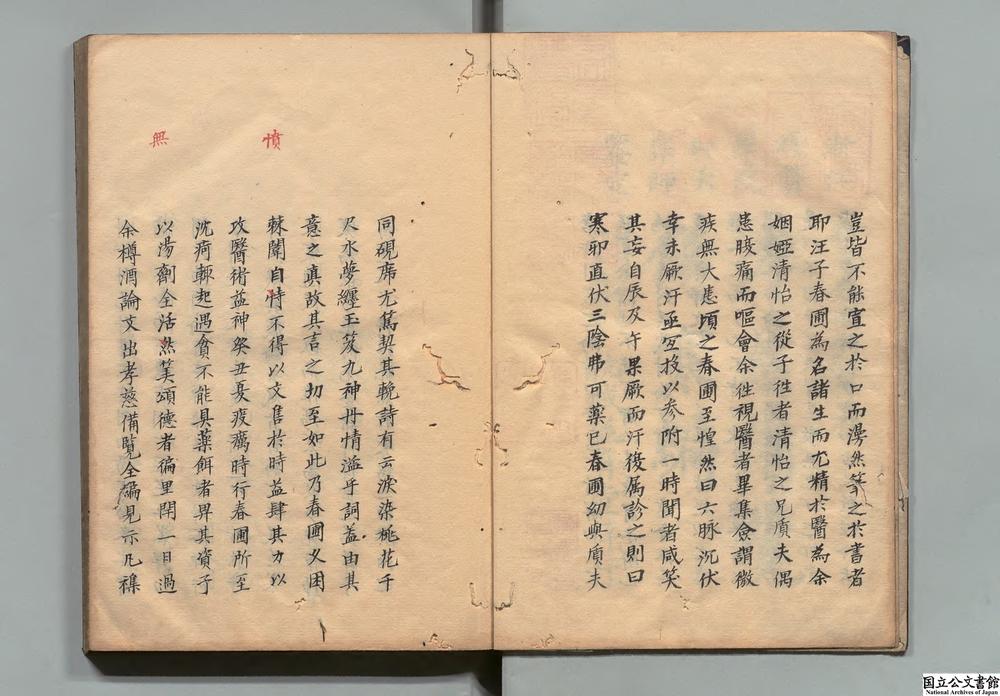 豈皆不能宣之於口而灁然筆之於書者
耶汪子春圃為名諸生而尤精於醫為余
姻婭清怡之從子徃者清怡之兄質夫偶
患腹痛而嘔會余徃視醫者畢集僉謂微
疾無大患頃之春圃至惶然曰六脉沉伏
幸未厥汗亟宜投以参附一時聞者咸笑
其妄自辰及午果厥而汗復属診之則曰
寒邪直伏三陰弗可藥已春圃幼與質夫
同硯席尤篤契其輓詩有云淚染桃花千
尺水夢纏玉笈九神丹情溢乎詞葢由其
意之真故其言之切至如此乃春圃又困
棘闈自恃不得以文售於時益肆其力以
攻醫術益神癸丑夏疫癘時行春圃所至
沈疴輙起遇貧不能具藥餌者畀其資予
以湯劑全活然筭頌德者徧里閈一日過
余樽酒論文出孝慈備覧全編見示凡襍
憤
無
国立公文書館
National Archives of Japan